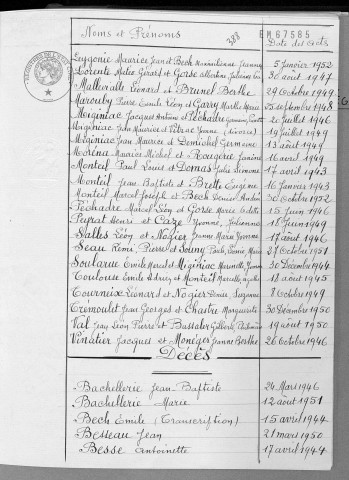 388 EM67585
Noms et Prénoms Date des Acts
Leygonie Maurice Jean et Bech 5 Janvier 1952
Lorente Gérard et Gorse Albertine 30 août 1947
Mallevalle Léonard et Brunel Berthe 29 Octobre 1949
Marouby Pierre Emile Léon et Garry Marthe 25 septembre 1948
Miginiac Jacques Antoine et Péchadre 20 Juillet 1946
Miginiac Jean Maurice et Vitrac Jeanne (divorce) 19 Juillet 1949
Miginiac Jean Maurice et Demichel Germaine 13 août 1949
Moréna Maurice Michel et Rougerie 16 avril 1949
Monteil Paul Louis et Domas Julie Simonne 17 avril 1943
Monteil Jean Baptiste et Brette Eugénie 16 Janvier 1943
Monteil Marcel Joseph et Bech Denise 30 Octobre 1952
Péchadre Marcel Léon et Gorse Marie Odette 15 Juin 1946
Peyrat Henri et Caze Yvonne 18 Juin 1949
Salles Léon et Nogier Jeanne Marie Yvonne 17 août 1946
Seau Rémi Pierre et Soung Paule Jeanne Marie 27 Octobre 1951
Soularue Emile Marcel et Miginiac Henriette 30 Décembre 1944
Toulouse Emile et Monteil Marcelle 18 août 1945
Tourneix Léonard et Nogier Denise Suzanne 8 Octobre 1949
Trémoulet Jean Georges et Chastre Marguerite 30 Décembre 1950
Val Jean Léon Pierre et Bassaler Gilberte 19 août 1950
Vinatier Jacques et Monéger Jeanne Berthe 26 Octobre 1946
Décès
Bachellerie Jean Baptiste 24 Mars 1946
Bachellerie Marie 12 août 1951
Bech Emile (Transcription) 15 avril 1944
Besseau Jean 21 mars 1950
Besse Antoinette 17 avril 1944